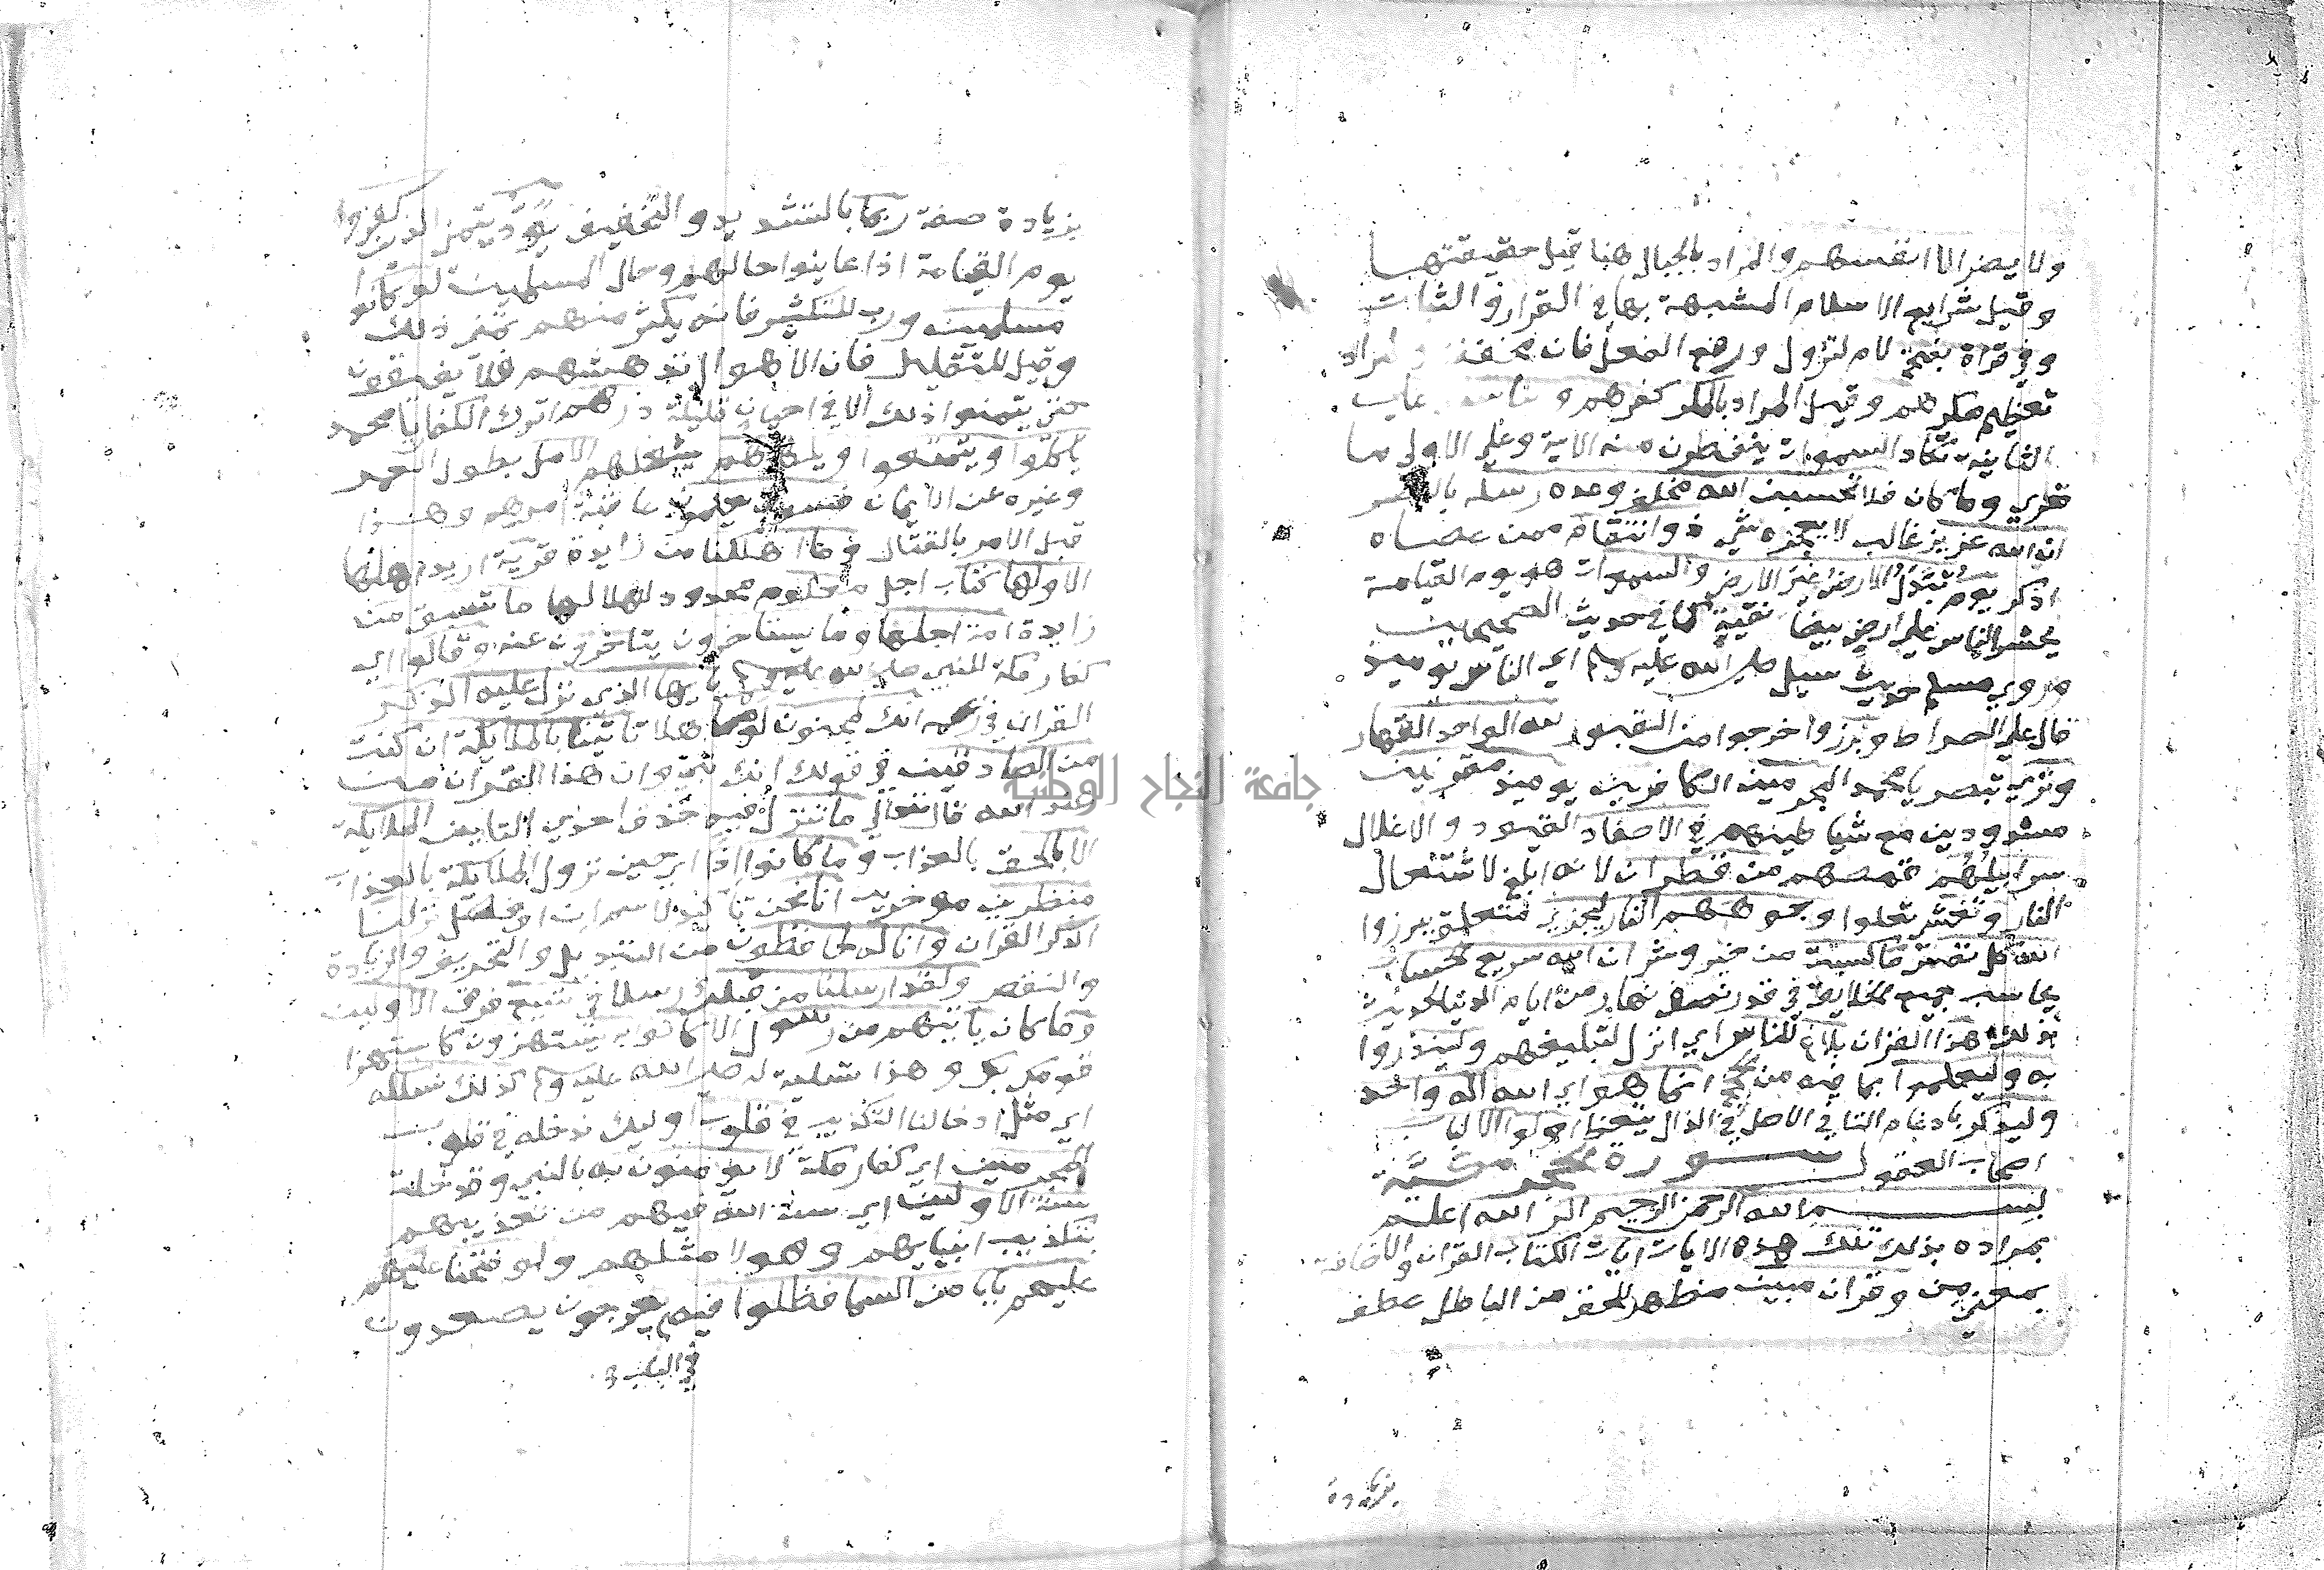 ولا يضر الا انفسهم والمراد بالجبال هنا قيل حقيقتها
وقيل شرايع الاسلام المشبهة بها في القرار والثبات
وفي قراة بفتح لام لتزول ورفع الفعل فان مخففة والمراد
تعظيم مكرهم وقيل المراد بالمكر كفرهم و
الثانية تكاد السموات يتفطرن منه الاية وعلى الاول ما
قري وما كان فلا تحسبن الله مخلف وعده رسله بالنصر
ان الله عزيز غالب لا يعجزه شي ذو انتقام ممن عصاه
اذكر يوم تُبدّل الارضُ غير الارض والسموات هو يوم القيامة
يحشر الناس على ارض بيضا نقية كما في حديث الصحيحين
وروي مسلم حديث سيل صلى الله عليه وسلم اي الناس يوميذ
قال على الصراط وبرزوا خرجوا من القبور لله الواحد القهار
وتري تبصر يا محمد المجرمين الكافرين يوميذ مقرنين
مشدودين مع شياطينهم في الاصفاد القيود والاغلال
سرابيلُهم قمصهم من قطران لانه ابلغ لاشتعال
النار وتغشى تعلوا وجوههم النار ليجزي متعلق ببرزوا
الله كل نفس ما كسبت من خير وشر ان الله سريع الحساب
يحاسب جميع الخلايق في قدر نصف نهار من ايام الدنيا لحديث
بذلك هذا القران بلاغ للناس اي انزل لتبليغهم ولينذروا
به وليعلموا بما فيه من الحجج انما هو اي الله اله واحد
وليذكر بادغام التا في الاصل في الذال يتعظ اولوا الالباب
اصحاب العقول سورة الحجر مكيّة
بسم الله الرحمن الرحيم الر الله اعلم
بمراده بذلك تلك هذه الايات ايات الكتاب القران والاضافة
بمعني من وقران مبين مظهر للحق من الباطل عطف
بزيادة
بزيادة صفة ربما بالتشديد والتخفيف يودّ يتمنى الذين كفروا
يوم القيامة اذا عاينوا حالهم وحال المسلمين لو كانوا
مسلمين ورب للتكثير فانه يكثر منهم تمني ذلك
وقيل للتقليل فان الاهوال تدهشهم فلا يفيقون
حتى يتمنوا ذلك الا في احيان قليلة ذرهم اترك الكفار يا محمد
ياكلوا ويتمتعوا ويلههم يشغلهم الامل بطول العمر
وغيره عن الايمان فسوف يعلمون عاقبة امرهم وهذا
قبل الامر بالقتال وما اهلكنا من زايدة قرية اريد اهلها
الا ولها كتاب اجل معلوم محدود لهلاكها ما تسبق من
زايدة امة اجلها وما يستاخرون يتاخرون عنه وقالوا اي
كفار مكة للنبي صلى الله عليه وسلم يا ايها الذي نزل عليه الذكر
القران في زعمه انك لمجنون لوما هلا تاتينا بالملايكة ان كنت
من الصادقين في قولك انك نبي وان هذا القران من
عند الله قال تعالي ما تنزل فيه حذف احدي التايين الملايكة
الا بالحق بالعذاب وما كانوا اذا اي حين نزول الملايكة بالعذاب
منظرين موخرين انا نحن تاكيد لاسم ان او فصل نزلنا
الذكر القران وانا له لحافظون من التبديل والتحريف والزيادة
والنقص ولقد ارسلنا من قبلك رسلا في شيع فرق الاولين
وما كان ياتيهم من رسول الا كانوا به يستهزون كاستهزا
قومك بك وهذا تسلية له صلى الله عليه وسلم كذلك نسلكه
اي مثل ادخالنا التكذيب في قلوب اوليك ندخله في قلوب
المجرمين اي كفار مكة لا يومنون به بالنبي وقد خلت
سنة الاولين اي سنة الله فيهم من تعذيبهم
بتكذيب انبيايهم وهولا مثلهم ولو فتحنا عليهم
عليهم بابا من السما فظلوا فيه يعرجون يصعدون
في الباب
جامعة النجاح الوطنية